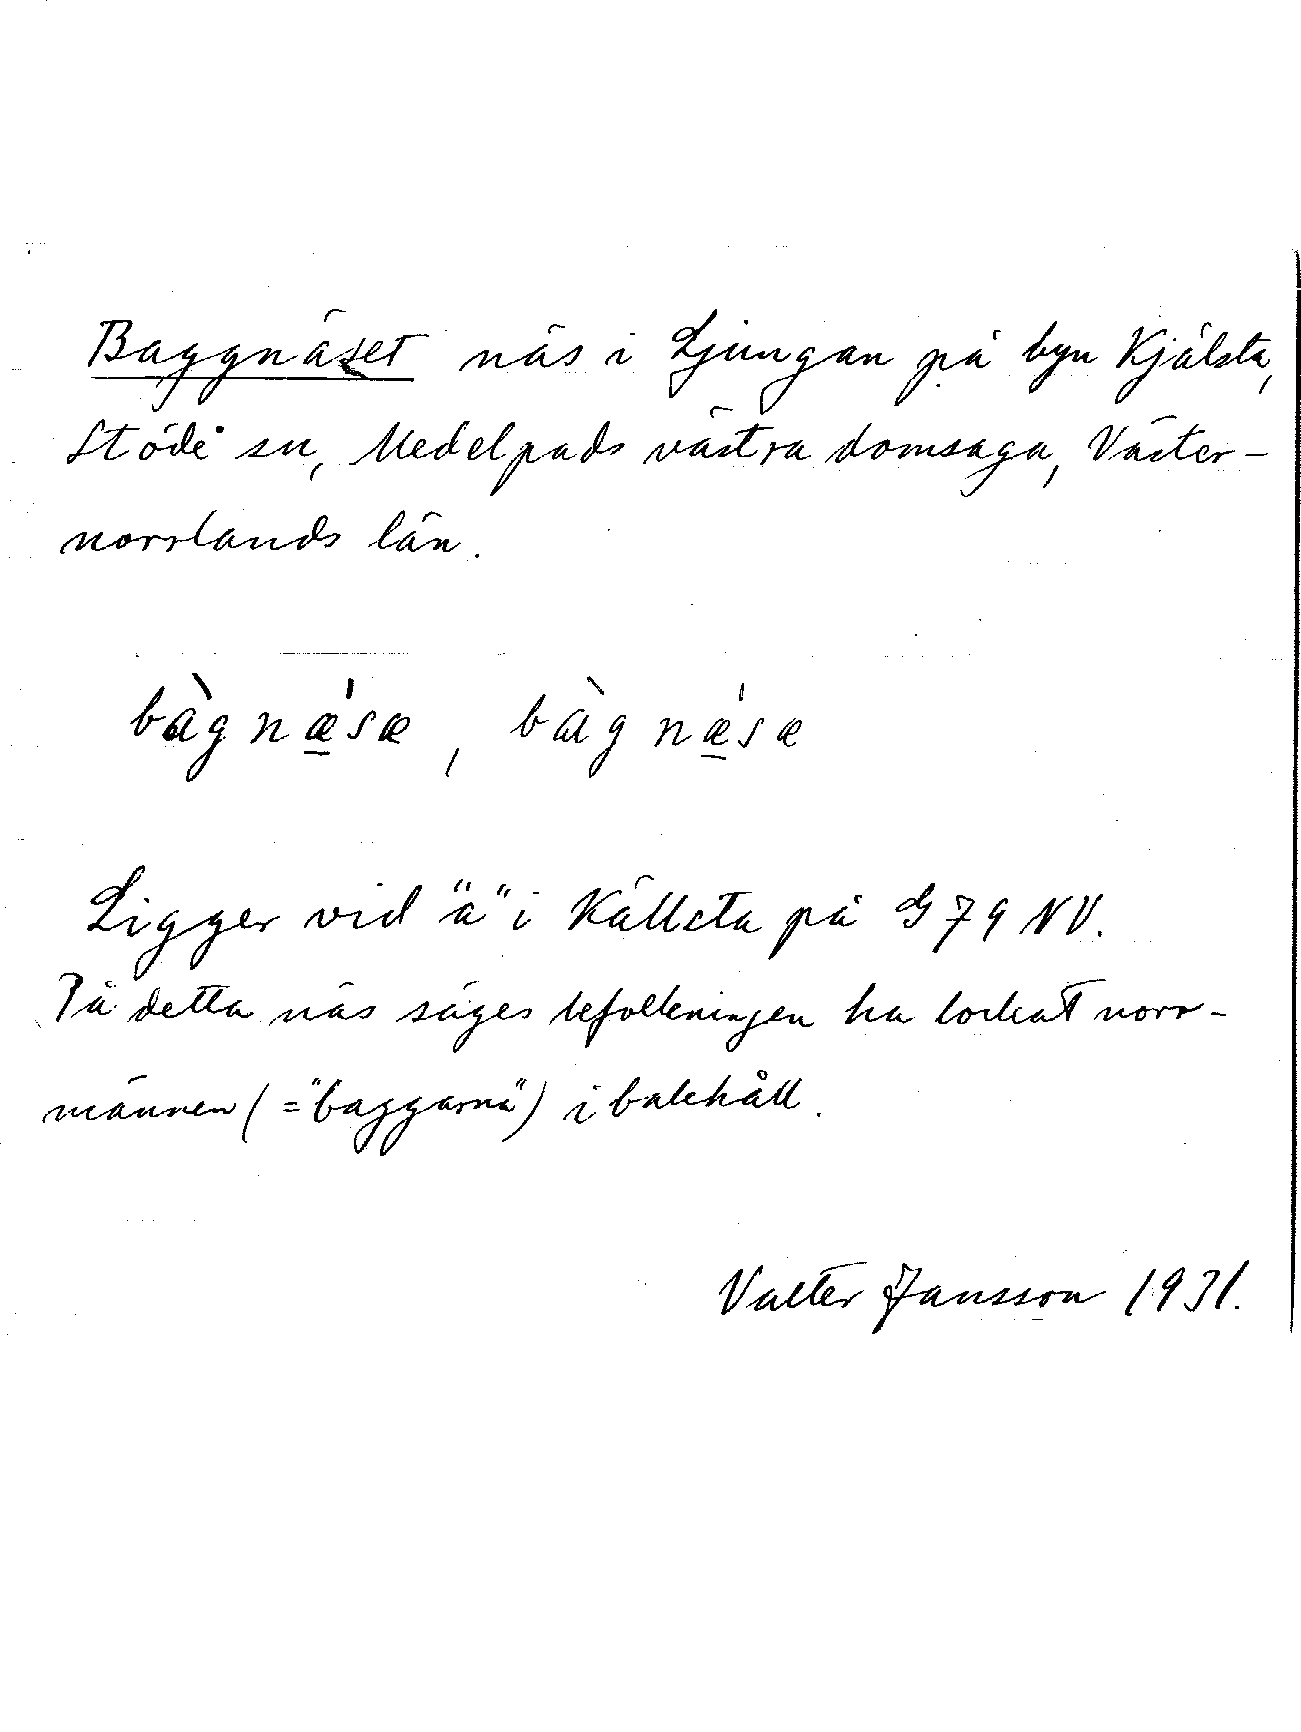 Baggnäset näs i Ljungan på byn Kjälsta,
Stöde sn, Medelpads västra domsaga, Väster-
norrlands län.
bàgnǽ̲sæ, bàgnǽ̲sæ
Ligger vid "ä" i Källsta på G 79 NV.
På detta näs säges befolkningen ha lockat norr-
männen (= "baggarna") i bakhåll.
Valter Jansson 1931.